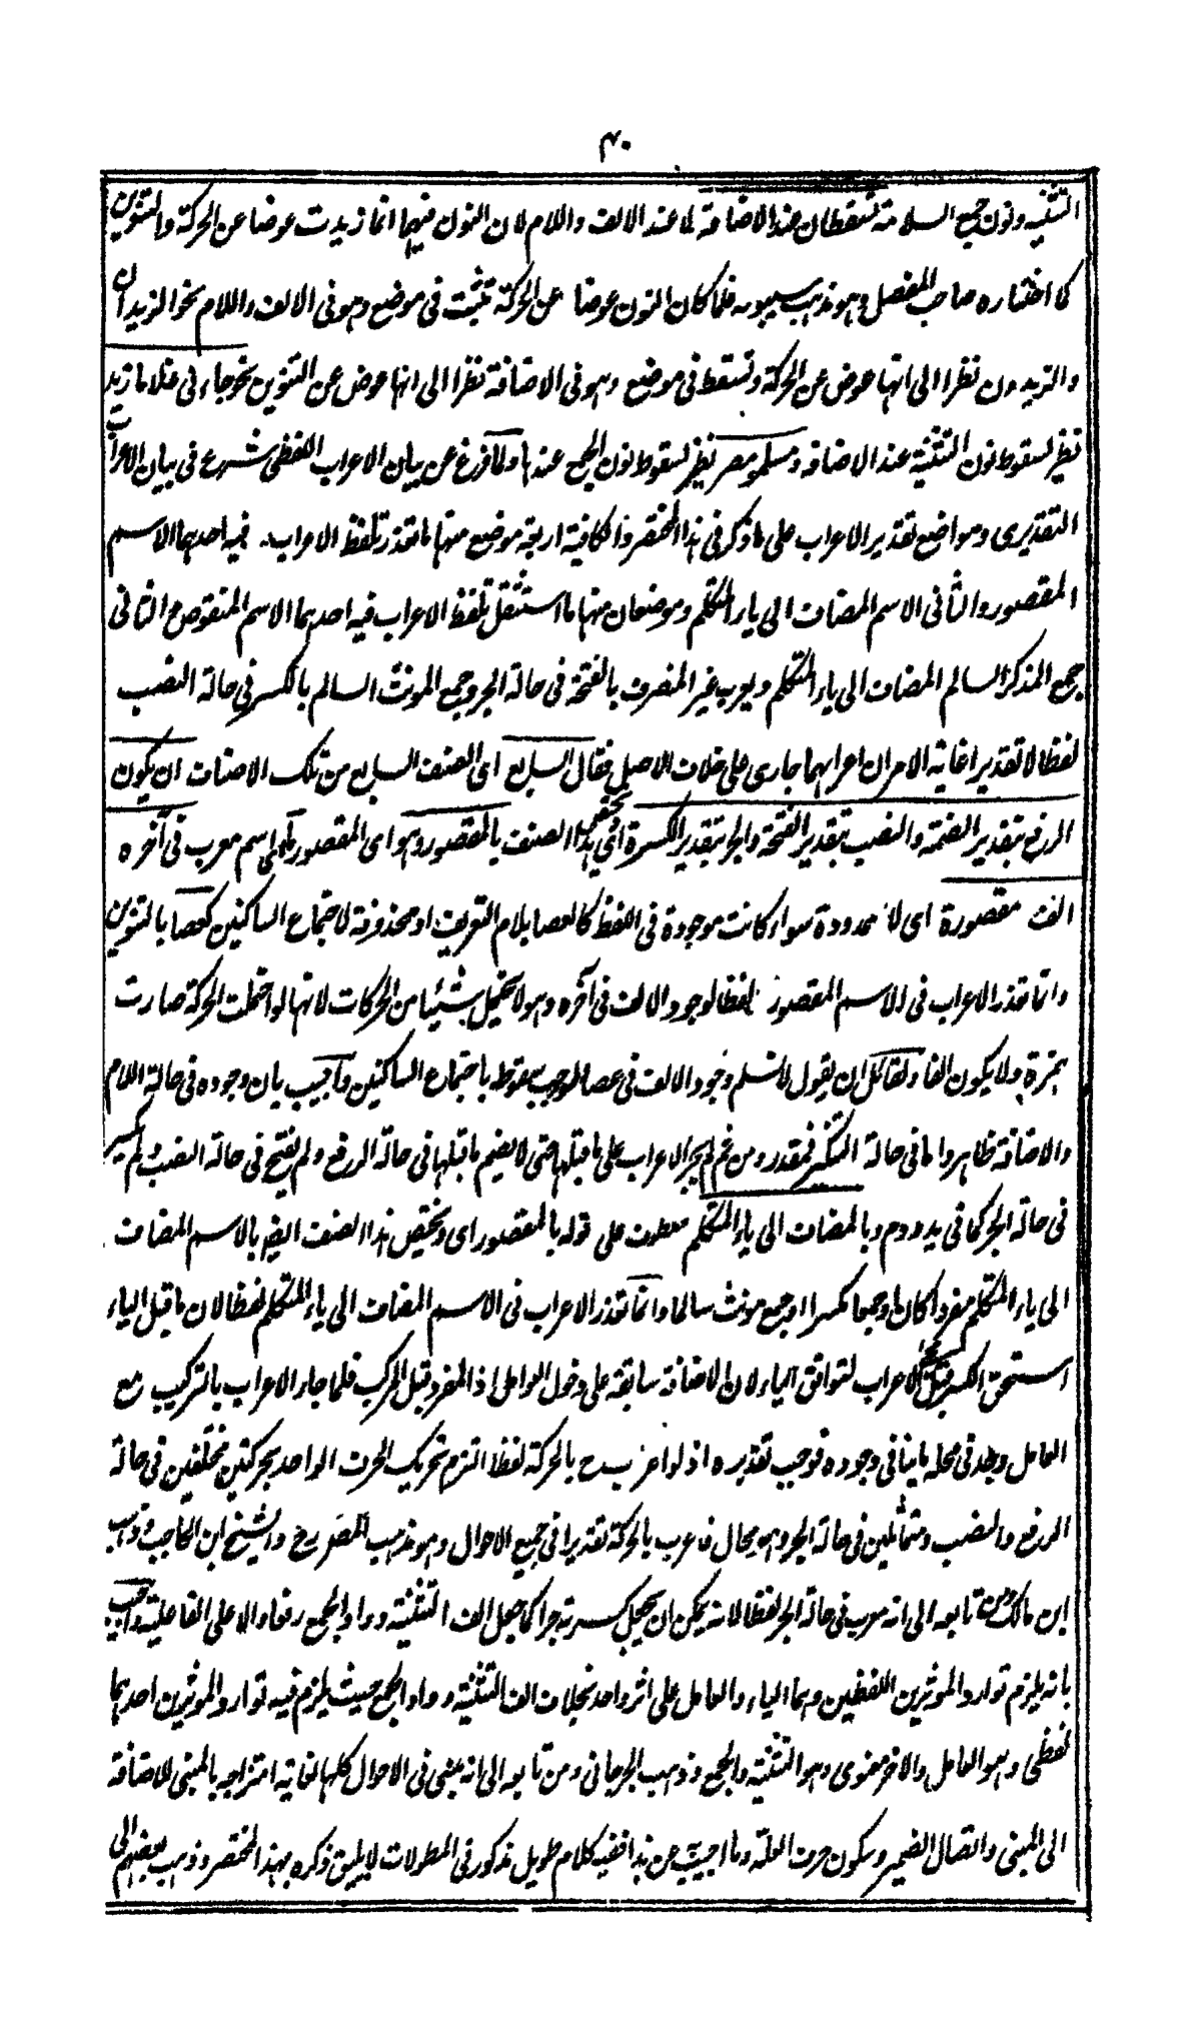 ۴۰
التثنية ونون جمع السلامة تسقطان عند الاضافة لا عند الالف واللام لان النون فيهما انما زيدت عوضا عن الحركة والتنوين
كما اختاره صاحب المفصل وهو مذهب سيبويه فلما كان النون عوضا عن الحركة تثبت فى موضع وهو فى الالف واللام نحو الزيدان
والزيدون نظرا الى انها عوض عن الحركة وتسقط فى موضع وهو فى الاضافة نظرا الى انها عوض عن التنوين نحو جاءنى غلاما زيد
نظير لسقوط نون التثنية عند الاضافة ومسلمو مصر نظير لسقوط نون الجمع عندها ولما فرغ عن بيان الاعراب اللفظى شرع فى بيان الاعراب
التقديرى ومواضع تقدير الاعراب على ما ذكر فى هذا المختصر والكافية اربعة موضع منها ما تعذر تلفظ الاعراب فيه احدهما الاسم
المقصور والثانى الاسم المضاف الى ياء المتكلم وموضعان منها ما استثقل تلفظ الاعراب فيه احدهما الاسم المنقوص والثانى
جمع المذكر السالم المضاف الى ياء المتكلم ويعرب غير المنصرف بالفتحة فى حالة الجر وجمع المونث السالم بالكسر فى حالة النصب
لفظا لا تقديرا غاية الامر ان اعرابهما جارى على خلاف الاصل فقال السابع اى الصنف السابع من تلك الاصناف ان يكون
الرفع بتقدير الضمة والنصب بتقدير الفتحة والجر بتقدير الكسرة اى يختص هذا الصنف بالمقصور وهو اى المقصور ما اى اسم معرب فى آخره
الف مقصورة اى لا ممدودة سواء كانت موجودة فى اللفظ كالعصا بلام التعريف او محذوفة لاجتماع الساكنين كعصا بالتنوين
وانما تعذر الاعراب فى الاسم المقصور لفظا لوجود الالف فى آخره وهو لا يحتمل شيئا من الحركات لانها لو احتملت الحركة صارت
همزة ولا يكون الفا ولقائل ان يقول لا نسلم وجود الالف فى عصا لوجوب سقوطه باجتماع الساكنين واجيب بان وجوده فى حالة اللام
والاضافة ظاهر واما فى حالة التنكير فمقدر ومن ثم لم يجر الاعراب على ما قبلها حتى لا يضم ما قبلها فى حالة الرفع ولم يفتح فى حالة النصب ولم يكسر
فى حالة الجر كما فى يد ودم وبالمضاف الى ياء المتكلم معطوف على قوله بالمقصور اى ويختص هذا الصنف ايضا بالاسم المضاف
الى ياء المتكلم مفردا كان او جمعا مكسرا او جمع مونث سالما وانما تعذر الاعراب فى الاسم المضاف الى ياء المتكلم لفظا لان ما قبل الياء
استحق الكسر قبل الاعراب لتوافق الياء لان الاضافة سابقة على دخول العوامل اذ المفرد قبل المركب فلما جاء الاعراب بالتركيب مع
العامل وجد فى محله ما ينافى وجوده فوجب تقديره اذ لو اعرب بالحركة لفظا التزم تحريك الحرف الواحد بحركتين مختلفين فى حالة
الرفع والنصب ومتماثلين فى حالة الجر وهو محال فاعرب بالحركة تقديرا فى جميع الاحوال وهو مذهب المصرح والشيخ ابن الحاجب وذهب
ابن مالك ومن تابعه الى انه معرب فى حالة الجر لفظا لانه يمكن ان يجعل كسرته جرا كما جعل الف التثنية وواو الجمع رفعا دالا على الفاعلية واجيب
بانه يلزم توارد الموثرين اللفظين وهما الياء والعامل على اثر واحد بخلاف الف التثنية وواو الجمع حيث يلزم فيه توارد الموثرين احدهما
لفظى وهو العامل والاخر معنوى وهو التثنية والجمع وذهب الجرجانى ومن تابعه الى انه مبنى فى الاحوال كلها لغاية امتزاجه بالمبنى للاضافة
الى المبنى واتصال الضمير وسكون حرف العلة وما اجيب عن هذا ففيه كلام طويل مذكور فى المطولات لا يليق ذكره بهذا المختصر وذهب بعضهم الى